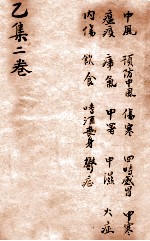 中風 預防中風 傷寒 四時感冒 中寒
瘟疫 中暑 中濕 火症
內傷 飲食 嗜酒喪身 鬱症
乙集二卷